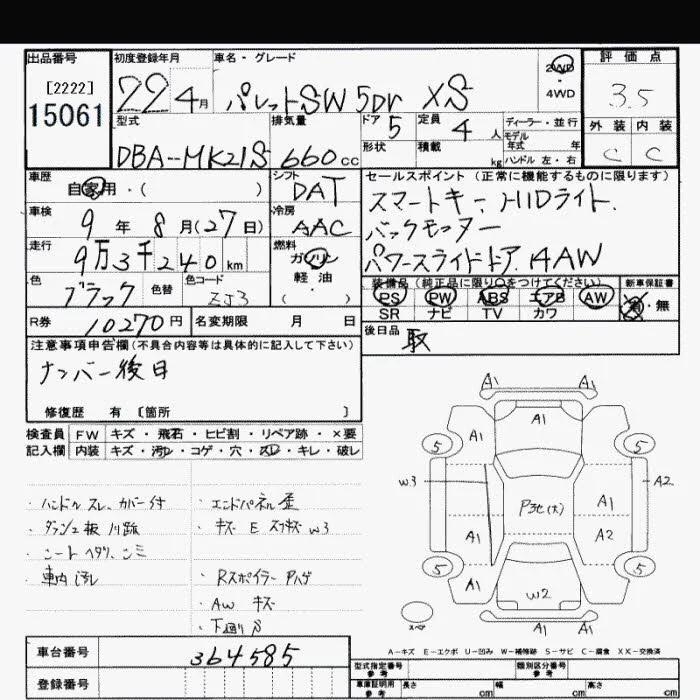 出品番号
[2222]
15061
初度登録年月
22 4月
車名・グレード
パレットSW 5Dr XS
2WD
・
4WD
評価点
3.5
型式
DBA-MK21S
排気量
660cc
ドア 5
形状
定員 4 人
積載 kg
ディーラー・並行
モデル
年式 年
ハンドル 左・右
外装 内装
C C
車歴
自家用・( )
シフト
DAT
セールスポイント (正常に機能するものに限ります)
スマートキー、HIDライト、
バックモニター
パワースライドドア、AAW
車検
9年 8月(27日)
冷房
AAC
走行
9万3千240km
燃料
ガソリン
軽油
・( )
色
ブラック
色替
色コード
ZJ3
装備品 (純正品に限り○をつけてください)
PS PW ABS エアB AW
SR ナビ TV カワ
新車保証書
有・無
R券 10270円
名変期限 月 日
後日品
取
注意事項申告欄(不具合内容等は具体的に記入して下さい)
ナンバー後日
修復歴 有 [箇所 ]
検査員
記入欄
FW キズ・飛石・ヒビ割・リペア跡・×要
内装 キズ・汚レ・コゲ・穴・スレ・キレ・破レ
・ハンドルスレ、カバー付
・ダッシュ板
・シートヘタリ、シミ
・車内汚レ
・エンドパネル歪
・キズ E W3
・Rスポイラー ハゲ
・AW キズ
・下廻りS
A1 A1
A1 A1
5 5
W3 A2
P3セ(大) A1
A1 A2
5 5
A1 W2
スペア
A1 A1
A-キズ E-エクボ U-凹み W-補修跡 S-サビ C-腐食 XX-交換済
車台番号
364585
登録番号
型式指定番号
参考
類別区分番号
参考
車庫証明用
参考
長さ cm 幅 cm 高さ cm